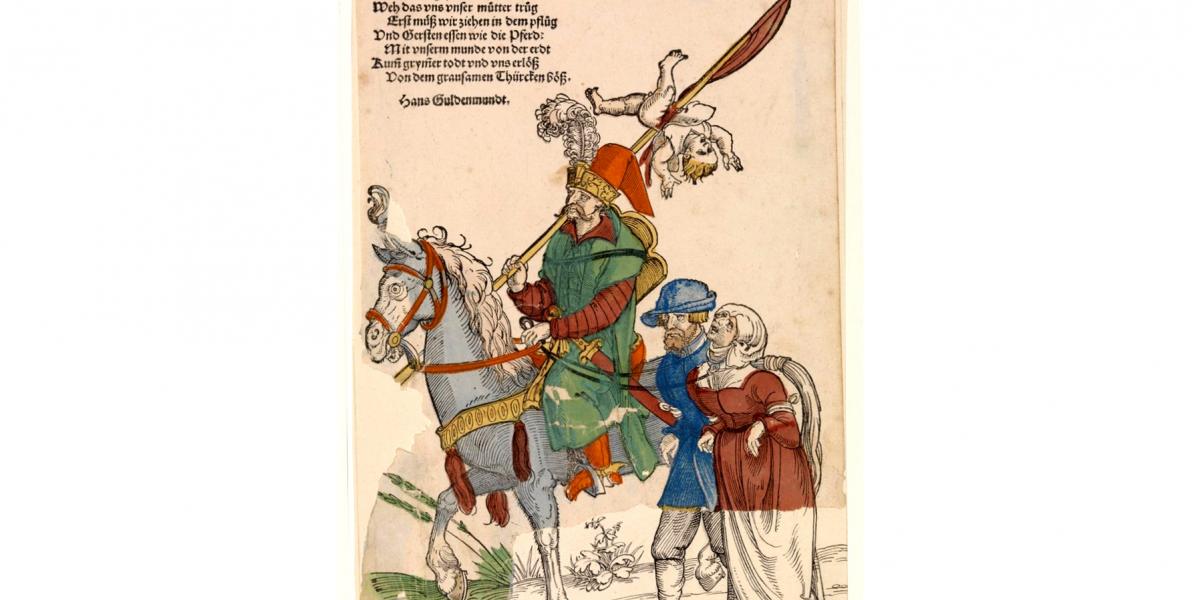 Weh das vns vnser mütter trüg
Erst müß wir ziehen in dem pflüg
Vnd Gersten essen wie die Pferd:
Mit vnserm munde von der erdt
Kum̄ grym̄er todt vnd vns erlöß
Von dem grausamen Thürcken böß.
Hans Guldenmundt.